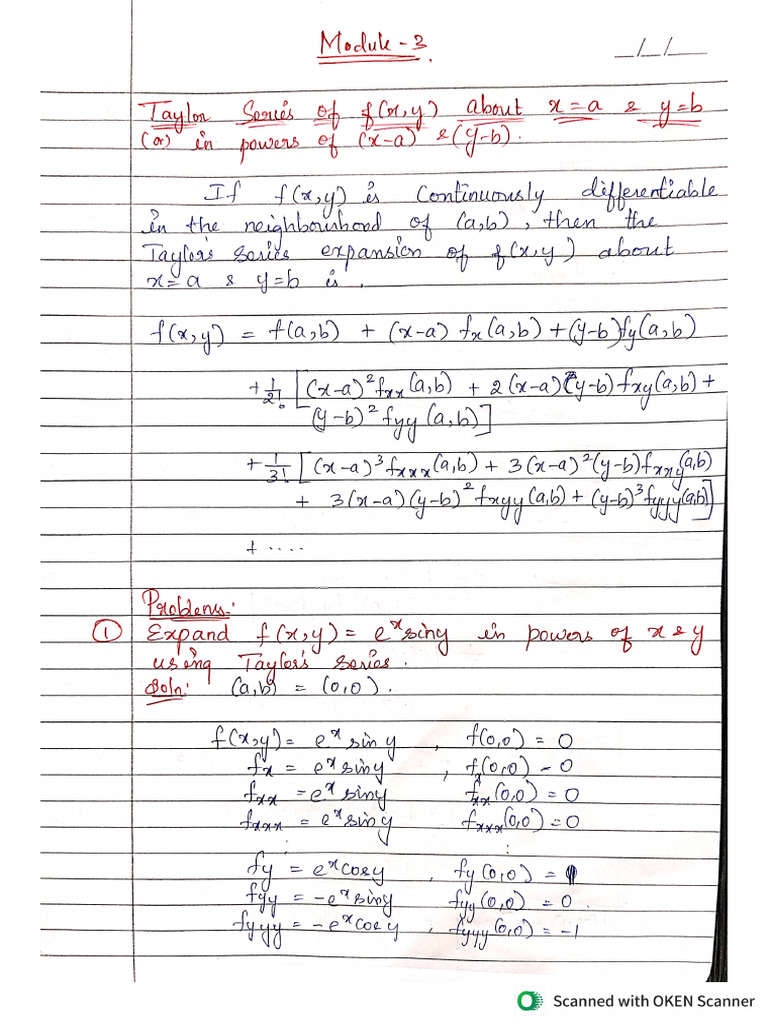 Module - 3.
_/_/__
Taylor Series of f(x,y) about x=a & y=b
(or) in powers of (x-a) & (y-b).
If f(x,y) is continuously differentiable
in the neighbourhood of (a,b), then the
Taylor's series expansion of f(x,y) about
x=a & y=b is.
f(x,y) = f(a,b) + (x-a) fx(a,b) + (y-b)fy(a,b)
+ 1/2! [(x-a)²fxx(a,b) + 2(x-a)(y-b)fxy(a,b) +
(y-b)²fyy(a,b)]
+ 1/3! [(x-a)³fxxx(a,b) + 3(x-a)²(y-b)fxxy(a,b)
+ 3(x-a)(y-b)²fxyy(a,b) + (y-b)³fyyy(a,b)]
+ ....
Problems:
① Expand f(x,y) = eˣsiny in powers of x & y
using Taylor's series.
Soln: (a,b) = (0,0).
f(x,y) = eˣ sin y , f(0,0) = 0
fx = eˣ siny , fx(0,0) - 0
fxx = eˣ siny fxx(0,0) = 0
fxxx = eˣ siny fxxx(0,0) = 0
: :
fy = eˣcosy , fy(0,0) = 1
fyy = -eˣsiny fyy(0,0) = 0.
fyyy = -eˣcosy , fyyy(0,0) = -1
Scanned with OKEN Scanner